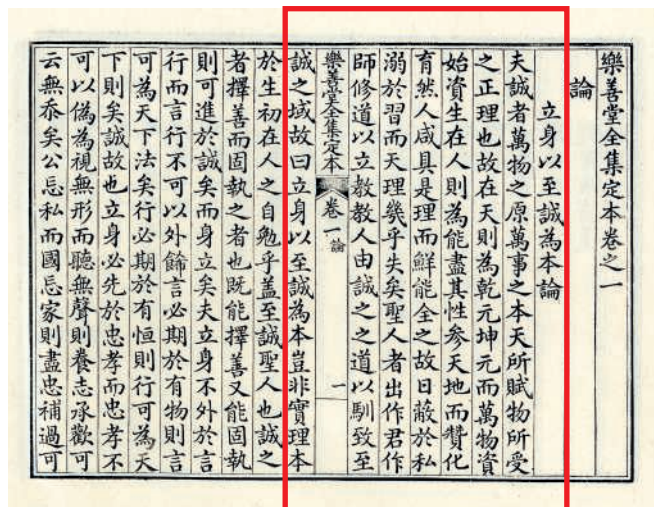 樂善堂全集定本卷之一
論
立身以至誠為本論
夫誠者萬物之原萬事之本天所賦物所受
之正理也故在天則為乾元坤元而萬物資
始資生在人則為能盡其性參天地而贊化
育然人咸具是理而鮮能全之故日蔽於私
溺於習而天理幾乎失矣聖人者出作君作
師修道以立教教人由誠之之道以馴致至
樂善堂全集定本
卷一論
一
誠之域故曰立身以至誠為本豈非實理本
於生初在人之自勉乎盖至誠聖人也誠之
者擇善而固執之者也既能擇善又能固執
則可進於誠矣而身立矣夫立身不外於言
行而言行不可以外餙言必期於有物則言
可為天下法矣行必期於有恒則行可為天
下則矣誠故也立身必先於忠孝而忠孝不
可以偽為視無形而聽無聲則養志承歡可
云無忝矣公忘私而國忘家則盡忠補過可